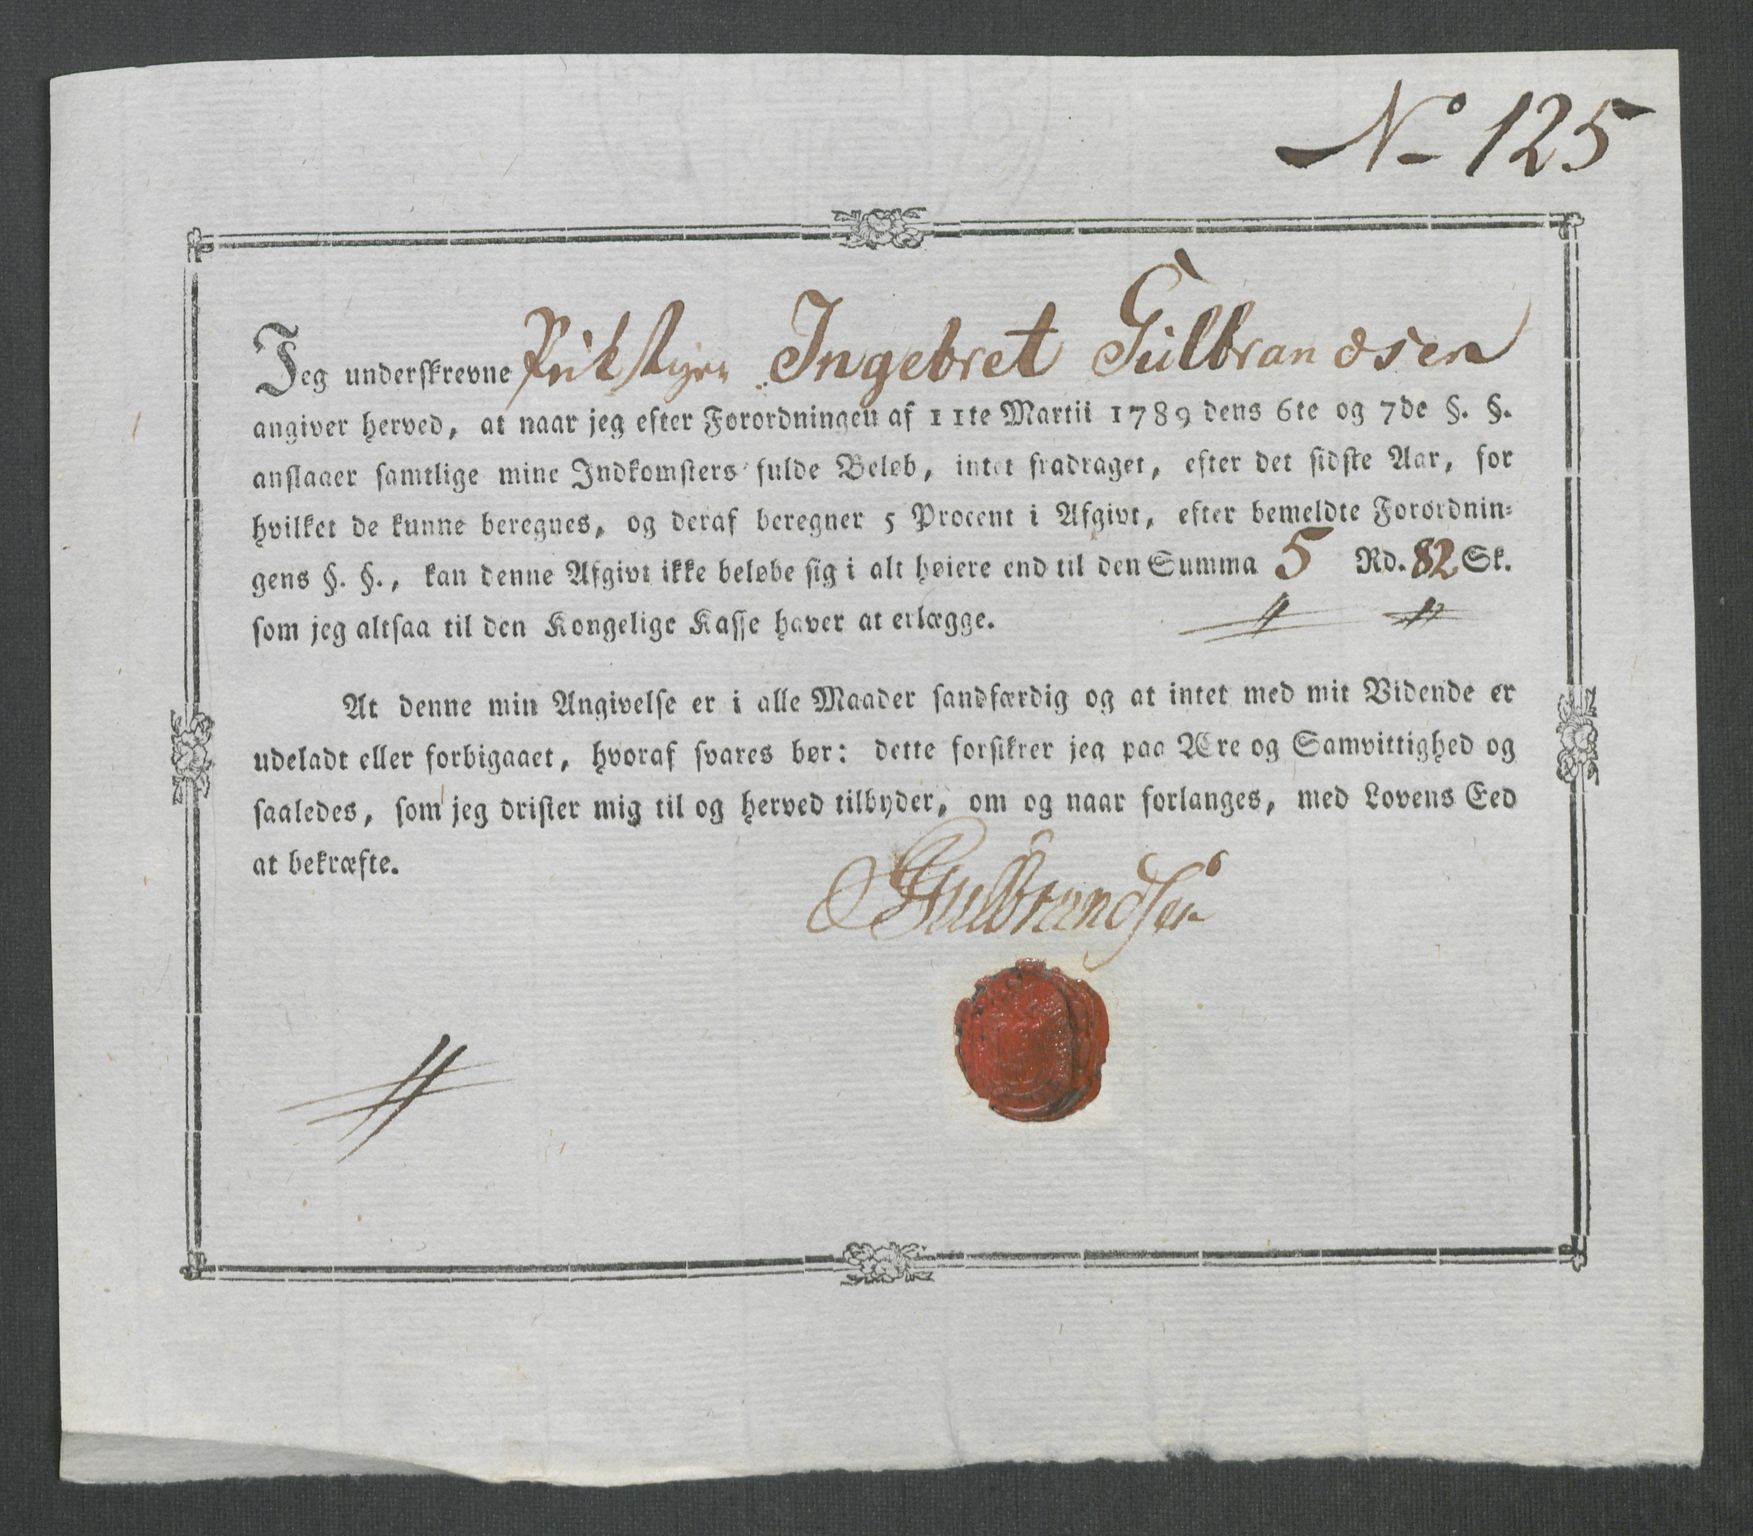 No 125
Jeg underskrevne Ingebret Gülbrandsen
angiver herved, at naar jeg efter Forordningen af 11te Martii 1789 dens 6te og 7de §. §.
anslaaer samtlige mine Indkomsters fulde Beløb, intet fradraget, efter det sidste Aar, for
hvilket de kunne beregnes, og deraf beregner 5 Procent i Afgivt, efter bemeldte Forordnin-
gens §. §., kan denne Afgivt ikke beløbe sig i alt høiere end til den Summa 5 Rd. 82 Sk.
som jeg altsaa til den Kongelige Kasse haver at erlægge.
At denne min Angivelse er i alle Maader sandfærdig og at intet med mit Vidende er
udeladt eller forbigaaet, hvoraf svares bør: dette forsikrer jeg paa Ære og Samvittighed og
saaledes, som jeg drister mig til og herved tilbyder, om og naar forlanges, med Lovens Eed
at bekræfte.
Gulbrandsen